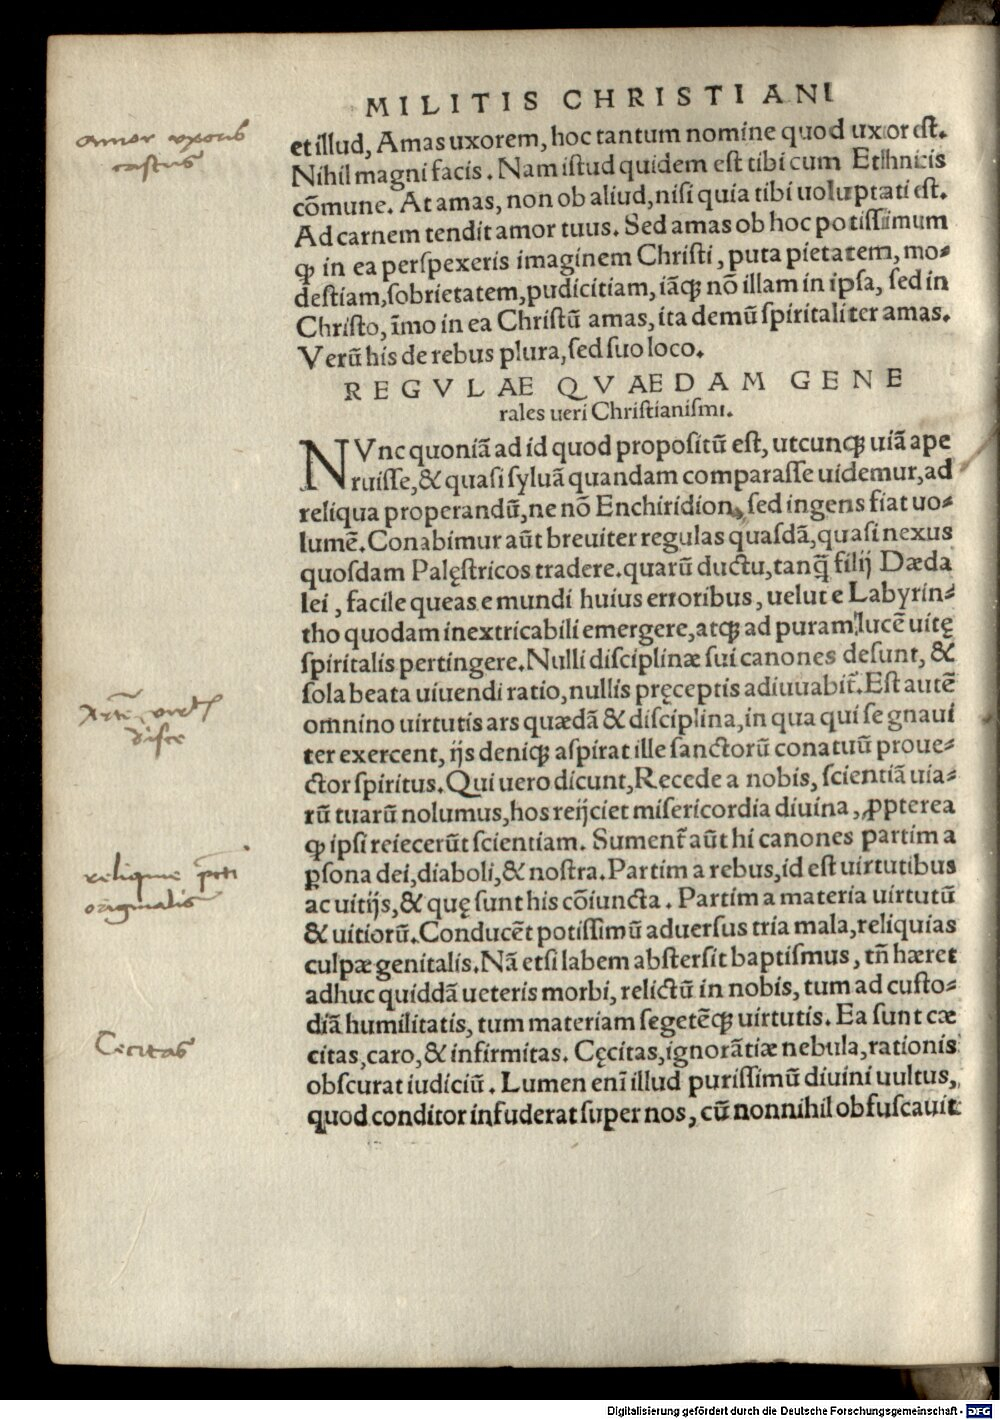 MILITIS CHRISTIANI
Amor vxoris
castus
et illud, Amas uxorem, hoc tantum nomine quod uxor est.
Nihil magni facis. Nam istud quidem est tibi cum Ethnicis
cōmune. At amas, non ob aliud, nisi quia tibi uoluptati est.
Ad carnem tendit amor tuus. Sed amas ob hoc potissimum
ꝙ in ea perspexeris imaginem Christi, puta pietatem, mo-
destiam, sobrietatem, pudicitiam, iāqꝫ nō illam in ipsa, sed in
Christo, īmo in ea Christū amas, ita demū spiritaliter amas.
Verū his de rebus plura, sed suo loco.
REGVLAE QVAEDAM GENE
rales ueri Christianismi.
NVnc quoniā ad id quod propositū est, utcunqꝫ uiā ape
ruisse, & quasi syluā quandam comparasse uidemur, ad
reliqua properandū, ne nō Enchiridion, sed ingens fiat uo-
lumē. Conabimur aūt breuiter regulas quasdā, quasi nexus
quosdam Palęstricos tradere. quarū ductu, tanq̄ filij Dæda
lei, facile queas e mundi huius erroribus, uelut e Labyrin-
tho quodam inextricabili emergere, atqꝫ ad puram lucē uitę
spiritalis pertingere. Nulli disciplinæ sui canones desunt, &
sola beata uiuendi ratio, nullis pręceptis adiuuabit̄. Est autē
omnino uirtutis ars quædā & disciplina, in qua qui se gnaui
disce
ter exercent, ijs deniqꝫ aspirat ille sanctorū conatuū proue-
ctor spiritus. Qui uero dicunt, Recede a nobis, scientiā uia-
rū tuarū nolumus, hos reijciet misericordia diuina, ꝓpterea
ꝙ ipsi reiecerūt scientiam. Sument̄ aūt hi canones partim a
reliquie pcti
originalis
ꝑsona dei, diaboli, & nostra. Partim a rebus, id est uirtutibus
ac uitijs, & quę sunt his cōiuncta. Partim a materia uirtutū
& uitiorū. Conducēt potissimū aduersus tria mala, reliquias
culpæ genitalis. Nā etsi labem abstersit baptismus, tn̄ hæret
adhuc quiddā ueteris morbi, relictū in nobis, tum ad custo-
diā humilitatis, tum materiam segetēqꝫ uirtutis. Ea sunt cæ
Cecitas
citas, caro, & infirmitas. Cęcitas, ignorātiæ nebula, rationis
obscurat iudiciū. Lumen enī illud purissimū diuini uultus,
quod conditor infuderat super nos, cū nonnihil obfuscauit
Digitalisierung gefördert durch die Deutsche Forschungsgemeinschaft - DFG